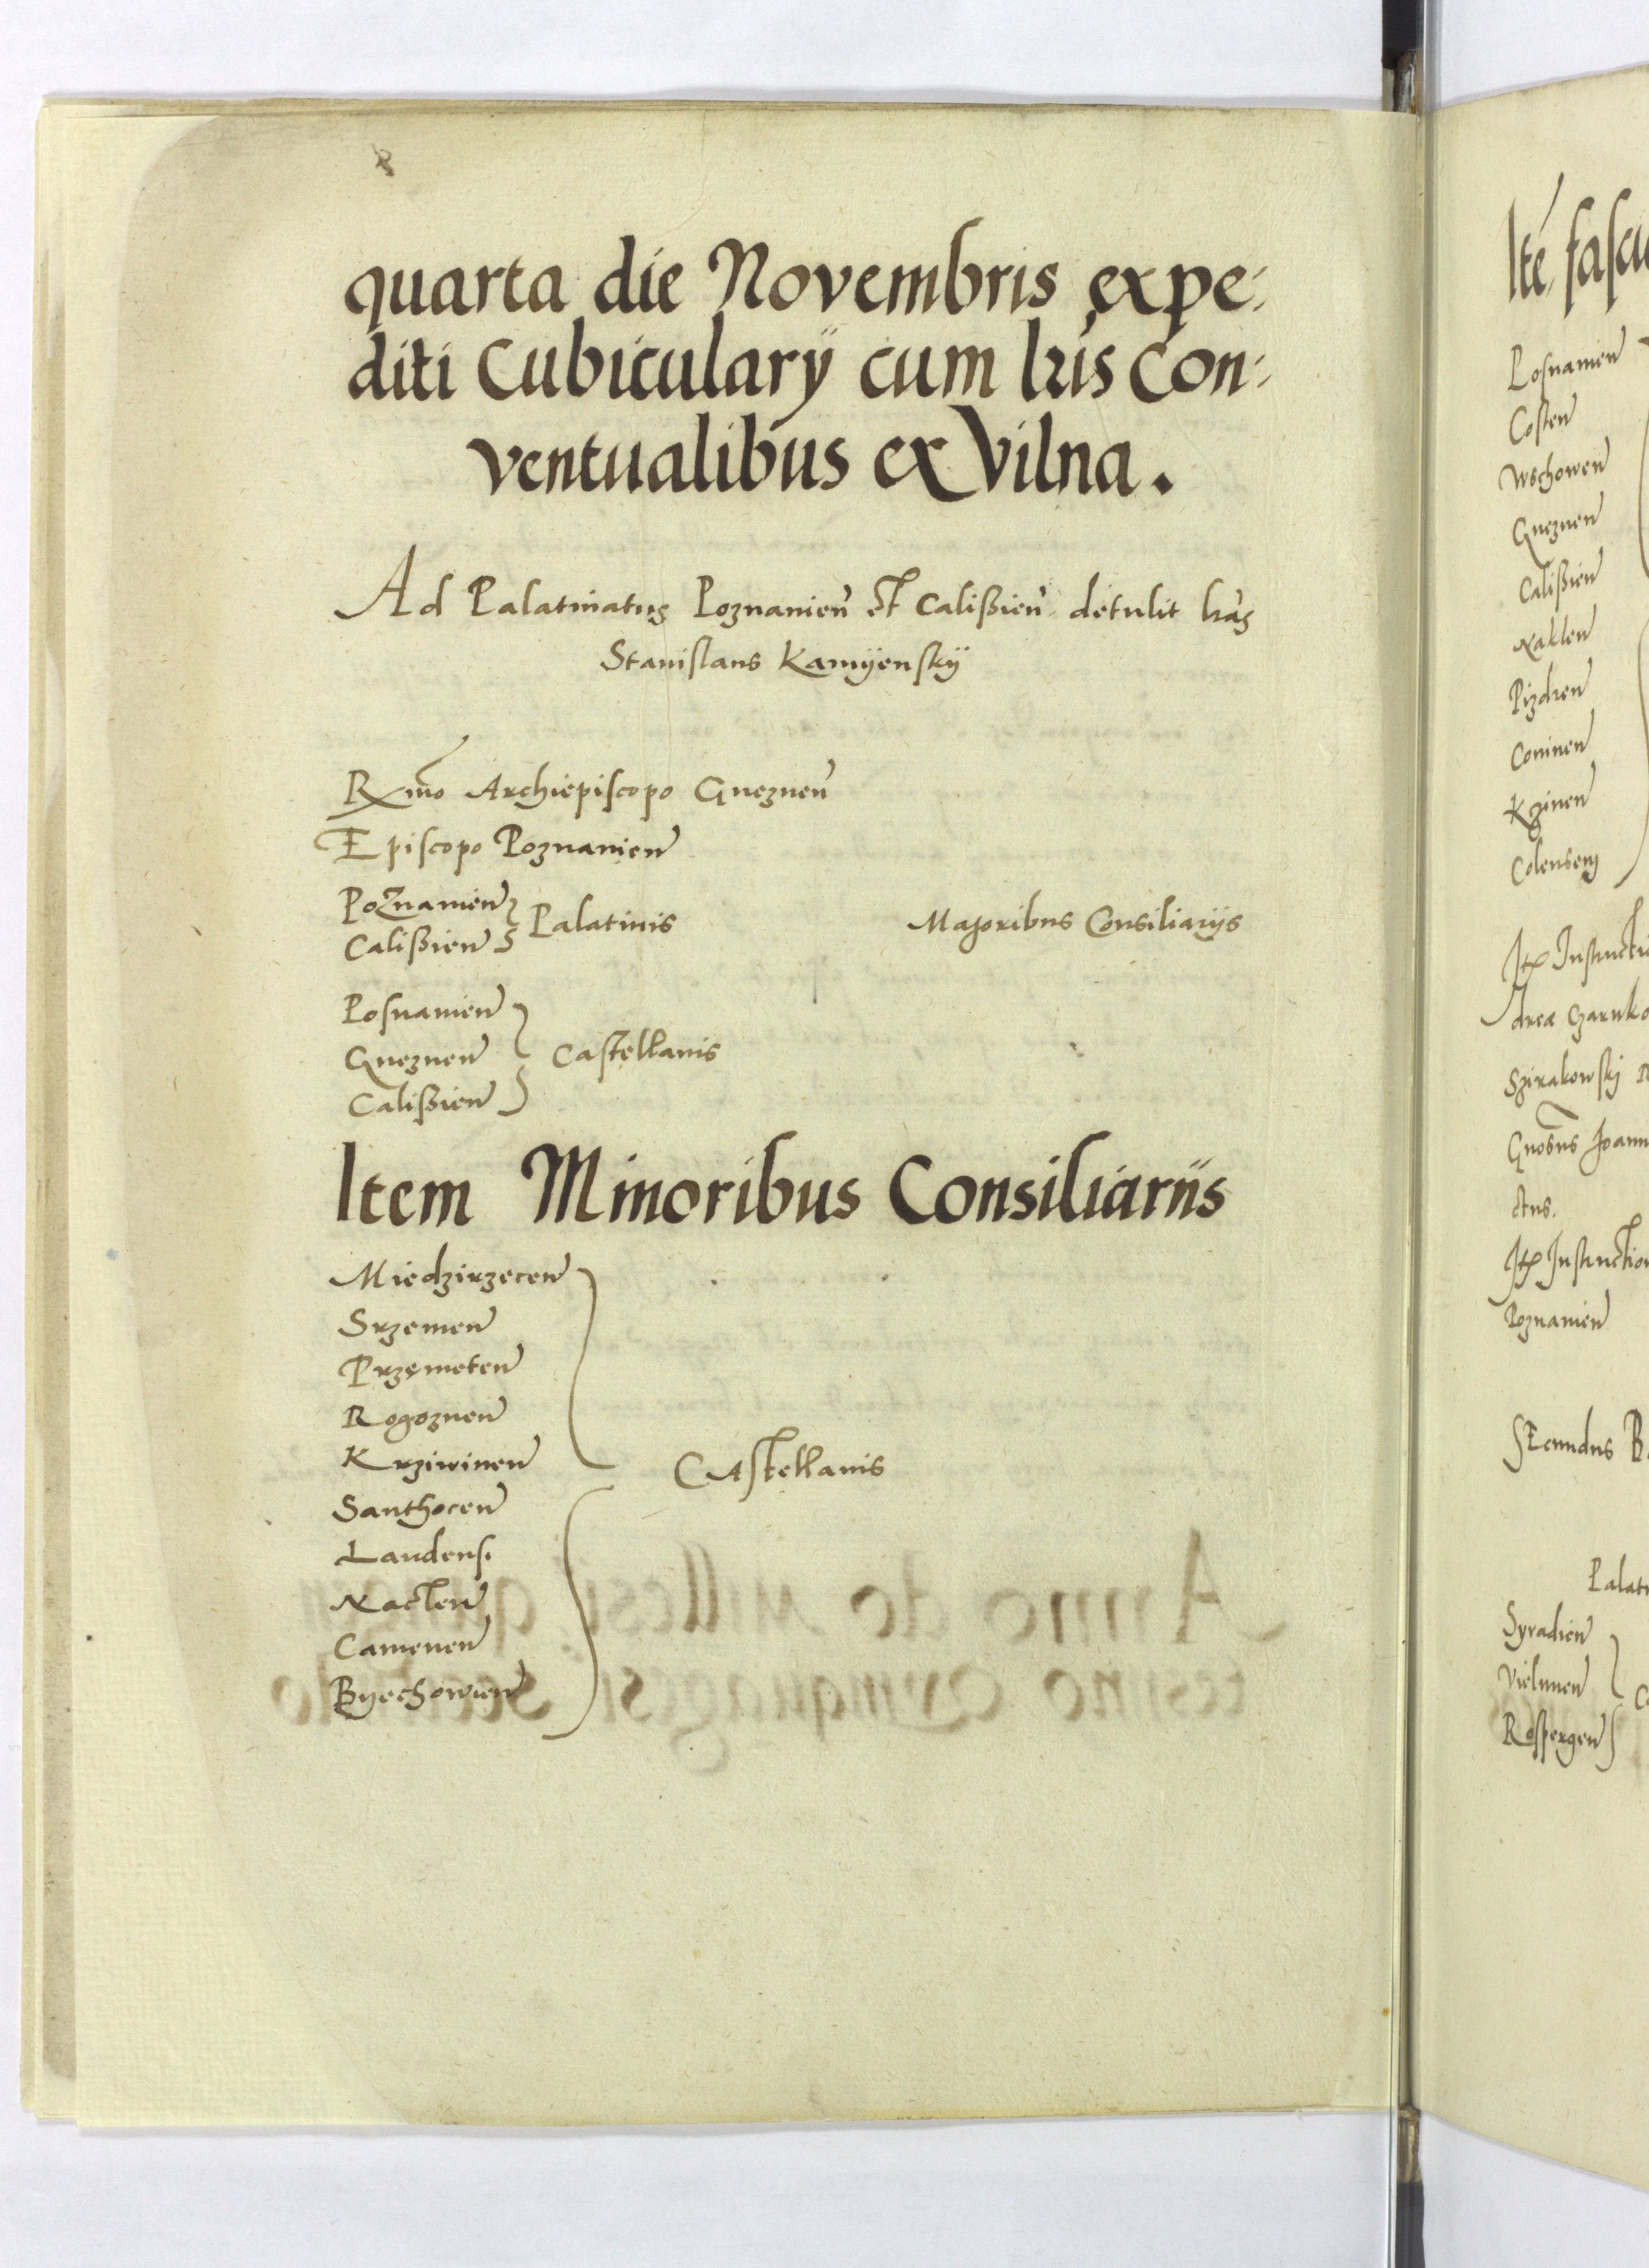 quarta die Novembris expe:
diti Cubicularÿ cum lris Con:
ventualibus ex Vilna.
Ad Palatinatus Poznanien et Calißien detulit lras
Stanislaus Kamÿenskÿ
Rxmo Archiepiscopo Gneznen
Episcopo Poznanien
Poznanien
Calißien
Palatinis
Majoribus Consiliarÿs
Posnanien
Gneznen
Calißien
Castellanis
Item Minoribus Consiliariis
Miedzirzecen
Srzemen
Przemeten
Rogoznen
Krziwinen
Santhocen
Landensi
Naclen
Camenen
Byechowien
Castellanis
Ite fascu
Posnanien
Costen
Wschowen
Gneznen
Calißien
Naklen
Pizdren
Coninen
Kzinen
Colensem
Szirakowskj
Gnosus Joann
ctus.
Poznanien
Secundus
Syradien
Vielunen
Rospergen